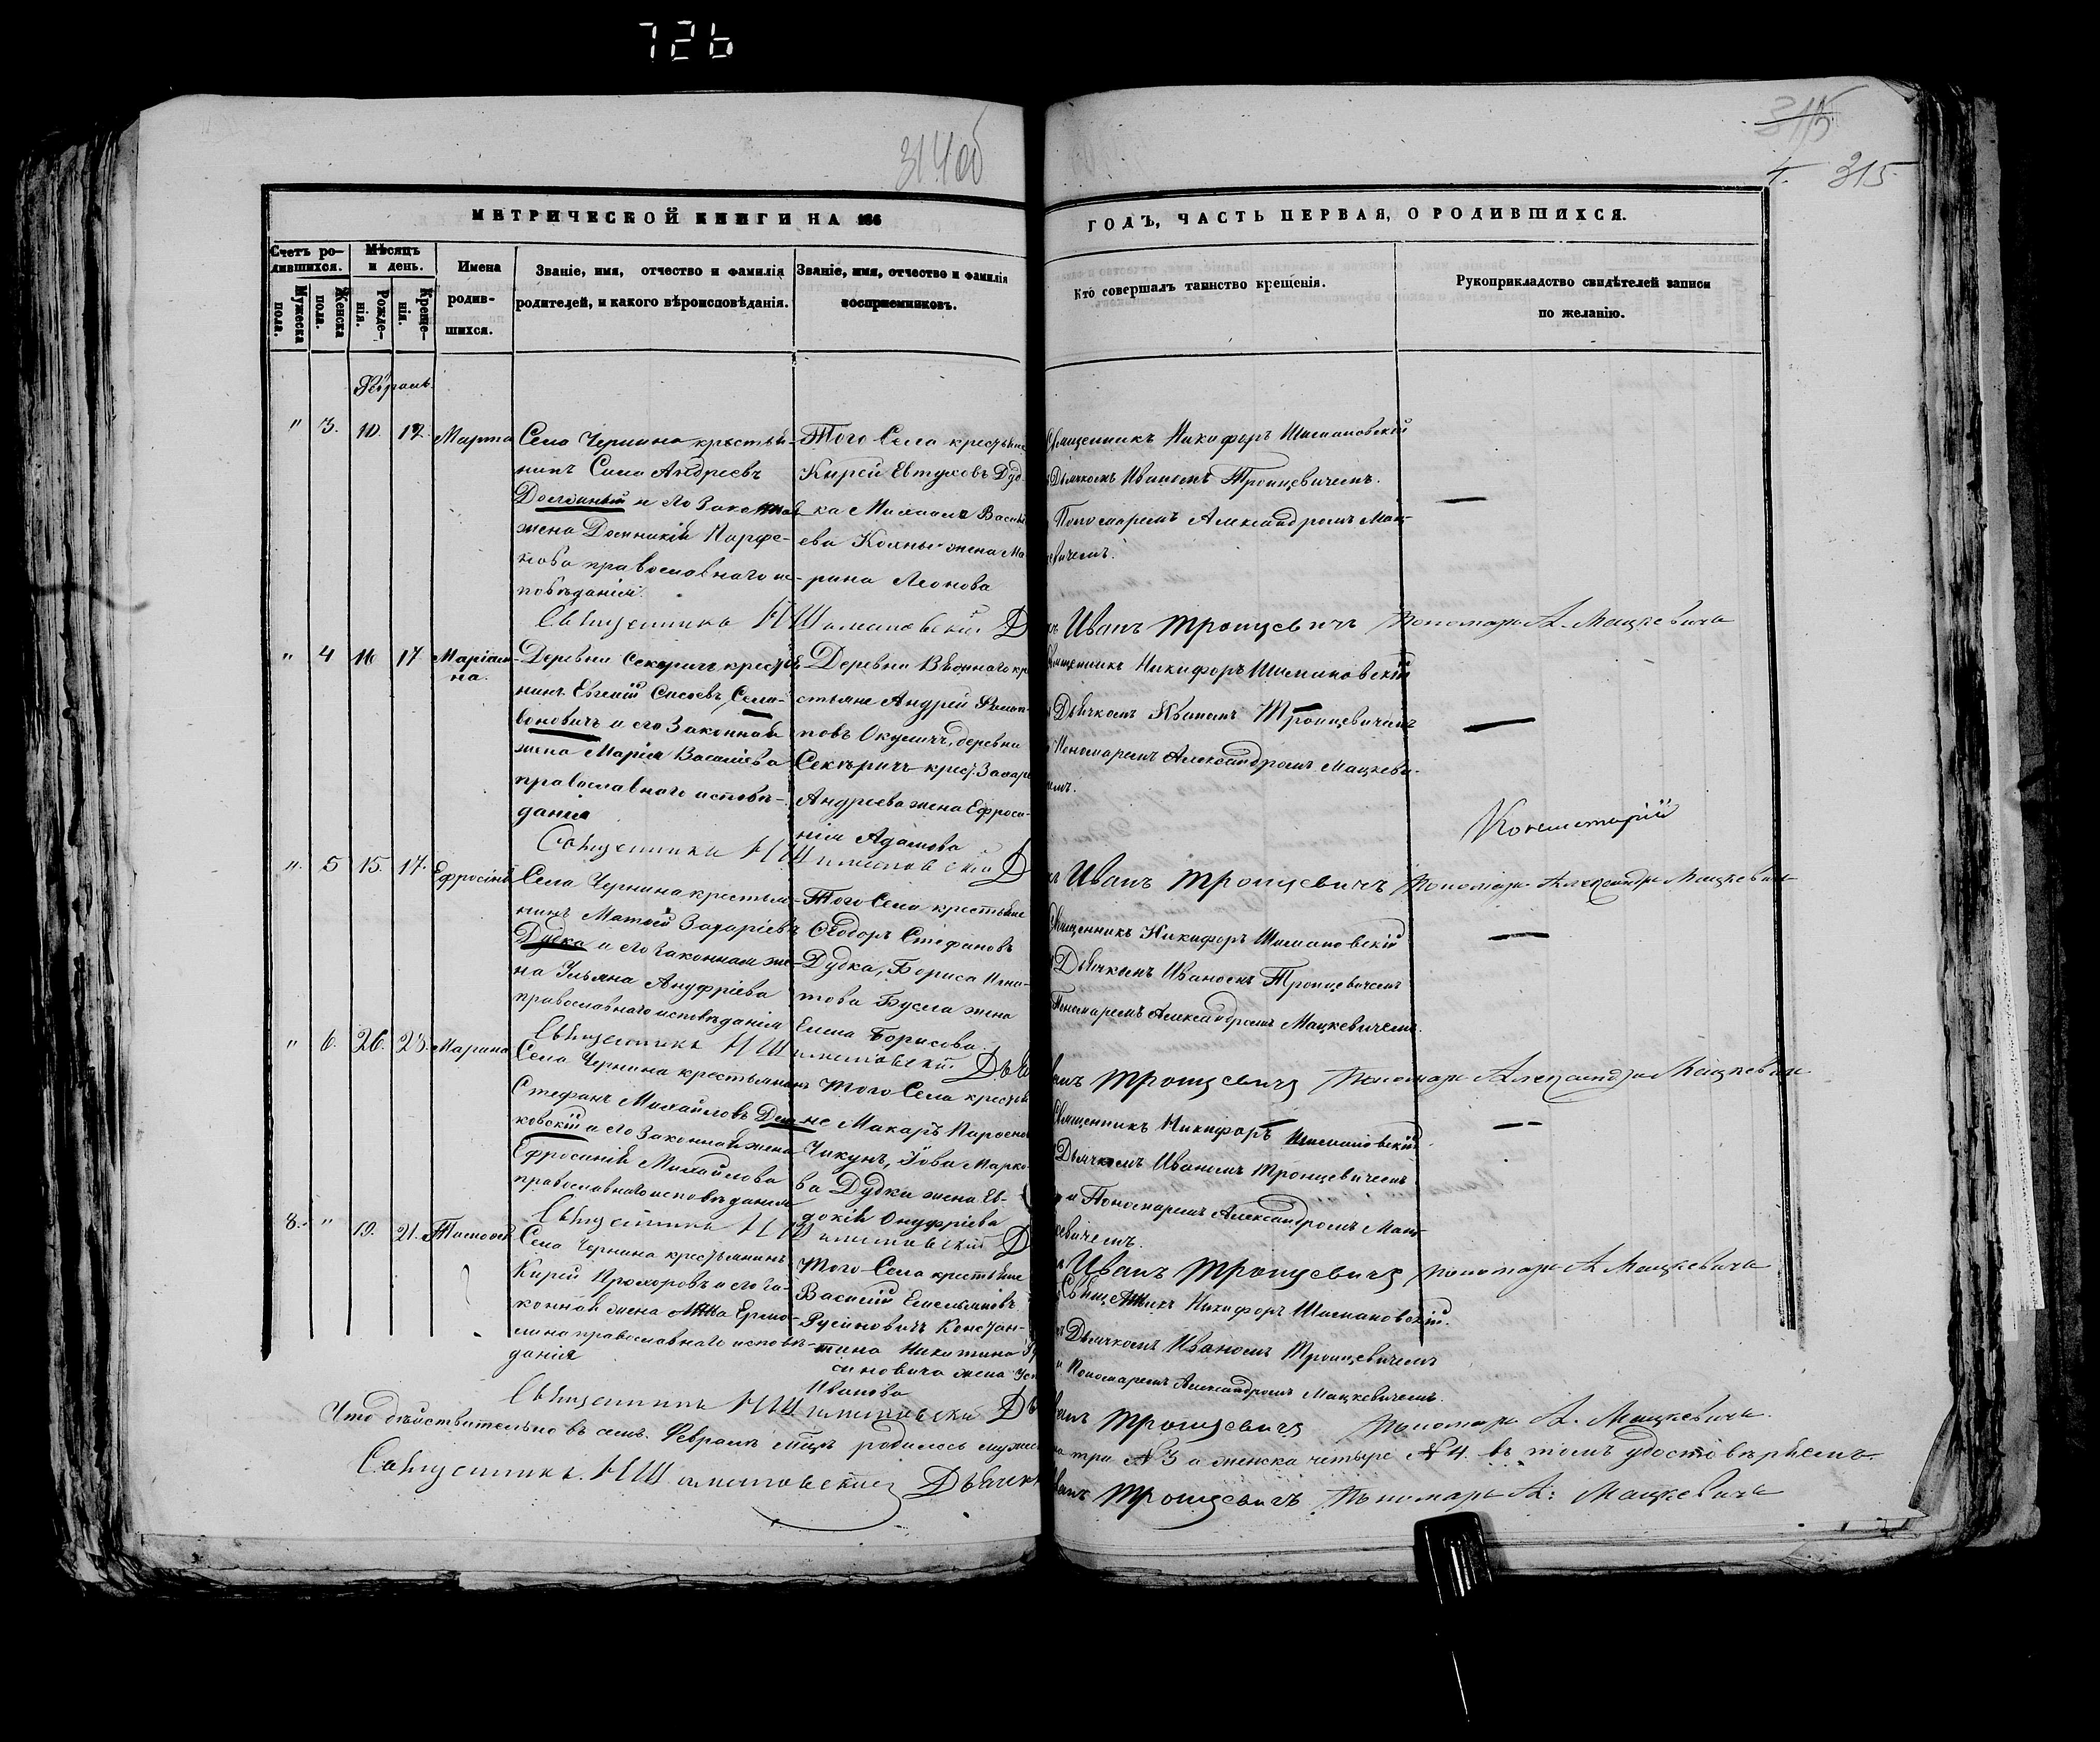 726
314об
315
315
МЕТРИЧЕСКОЙ КНИГИ НА 186
ГОДЪ, ЧАСТЬ ПЕРВАЯ, О РОДИВШИХСЯ.
Счетъ ро-
дившихся.
Мужеска
пола.
Женска
пола.
Мѣсяцъ
и день.
Рожде-
нія.
Креще-
нія.
Имена
родив-
шихся.
Званіе, имя, отчество и фамилія
родителей, и какого вѣроисповѣданія.
Званіе, имя, отчество и фамилія
воспріемниковъ.
Кто совершалъ таинство крещенія.
Рукоприкладство свидѣтелей записи
по желанію.
" 3. 10. 12. Марта
Села Чернина крестья-
нинъ Сила Андреевъ
и его законная
жена Домникія Парфе-
нова православнаго ис-
повѣданія.
Того Села крестьяне
Кирей Евтуховъ Дуд-
ка Михаила Василь
ева жена Ма
рина Леонова
Священникъ Никифоръ Шимановскій
Дьячкомъ Иваномъ Тронцевичемъ.
Пономаремъ Александромъ Мац-
кевичемъ.
Священникъ Н Шимановскій Д
Иванъ Тронцевичъ Пономарь А. Мацкевичъ
" 4 16 17 Маріан-
на.
Деревни Секеричъ крестья
нинъ Евгеній Сисоевъ Сели-
воновичъ и его законная
жена Марія Василіева
православнаго исповѣ-
данія
Деревни кре
стьяне Андрей Филип-
повъ Окуличъ, деревни
Секеричъ крест. Захара
Андреева жена Ефроси-
нія Адамова
Священникъ Никифоръ Шимановскій
Дьячкомъ Иваномъ Тронцевичемъ
Пономаремъ Александромъ Мацкеви-
чемъ.
Консисторіи
Священникъ Н Шимановскій Д
Иванъ Тронцевичъ Пономарь Александръ Мацкевичъ
" 5 15. 17. Ефросинія
Села Чернина крестья-
нинъ Матѳей Захаріевъ
Дудка и его законная же-
на Ульяна Ануфріева
православнаго исповѣданія
Того Села крестьяне
Ѳеодоръ Стефановъ
Дудка, Бориса Игна-
това Бусла жена
Елена Борисова.
Священникъ Никифоръ Шимановскій
Дьячкомъ Иваномъ Тронцевичемъ
Пономаремъ Александромъ Мацкевичемъ.
Священникъ Н Шимановскій Дьяч
Иванъ Тронцевичъ Пономарь Александръ Мацкевичъ
" 6. 26. 28. Марина
Села Чернина крестьянинъ
Стефанъ Михайловъ
ковскій и его законная жена
Ефросинія Михайлова
православнаго исповѣданія
Того Села крестья
не Макаръ
Чикунъ, Іова Марко-
ва Дудки жена Ев-
докія Онуфріева
Священникъ Никифоръ Шимановскій
Дьячкомъ Иваномъ Тронцевичемъ
и Пономаремъ Александромъ Мац-
кевичемъ.
Священникъ Н Шимановскій Д
Иванъ Тронцевичъ Пономарь А Мацкевичъ
8. " 19. 21. Тимоѳей
Села Чернина крестьянинъ
Кирей Прохоровъ и его за-
конная жена Анна Ермо-
лина православнаго исповѣ-
данія
Того Села крестьяне
Василій Емельяновъ
Русиновичъ Констан-
тина Никитина Ру
синовича жена
Иванова
Священникъ Никифоръ Шимановскій.
Дьячкомъ Иваномъ Тронцевичемъ
и Пономаремъ Александромъ Мацкевичемъ.
Священникъ Н Шимановскій Дь
Иванъ Тронцевичъ Пономарь А. Мацкевичъ.
Что дѣйствительно въ семъ Февралѣ м-цѣ родилось мужес
ка три №3 а женска четыре №4. въ томъ удостовѣряемъ.
Священникъ Н Шимановскій Дьячекъ
Иванъ Тронцевичъ Пономарь А: Мацкевичъ